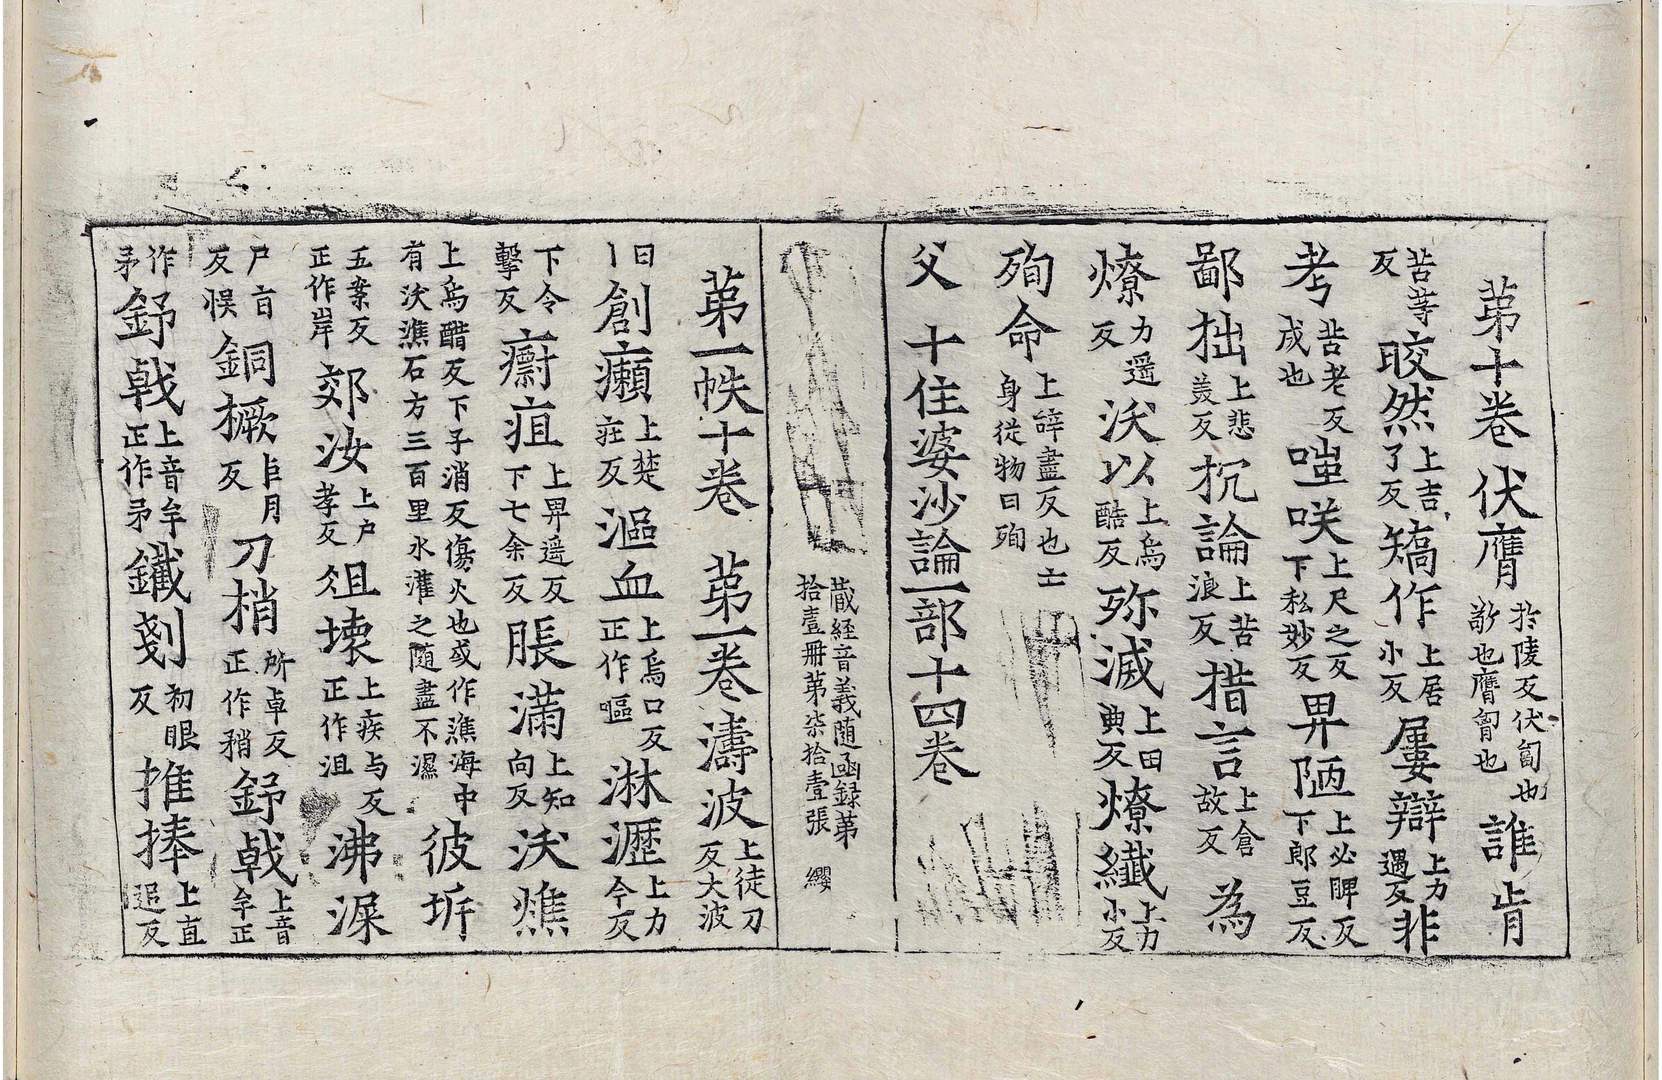 第十卷 伏膺 於陵反伏匈也 敬也膺匈也 誰肯
苦等 反 皎然 上吉 了反 矯作 上居 小反 屢辯 上力 遇反 非
考 苦老反 成也 嗤咲 上尺之反 下私妙反 畀陋 上必睥反 下郎豆反
鄙拙 上悲 美反 抗論 上苦 浪反 措言 上倉 故反 為
燎 力遥 反 沃以 上烏 酷反 殄滅 上田 典反 燎纖 上力 小反
殉命 上辝盡反也士 身從物曰殉
父 十住婆沙論一部十四卷
藏經音義随函録第
拾壹冊第柒拾壹張 纓
第一帙十卷 第一卷 濤波 上徒刀 反大波
曰 丨 創癩 上楚 疰反 漚血 上烏口反 正作嘔 淋瀝 上力 今反
下令 擊反 癠疽 上畀遥反 下七余反 脹滿 上知 向反 沃燋
上烏酷反下子消反傷火也或作潐海中 有沃潐石方三百里水灌之随盡不濕 彼圻
五案反 正作岸 郊汝 上户 孝反 俎壊 上疾与反 正作沮 沸㵽
尸盲 反悮 銅橛 巨月 反 刀梢 所卓反 正作矟 鉜戟 上音 牟正
作 矛 鉜戟 上音牟 正作矛 鐵剗 初眼 反 推捧 上直 追反